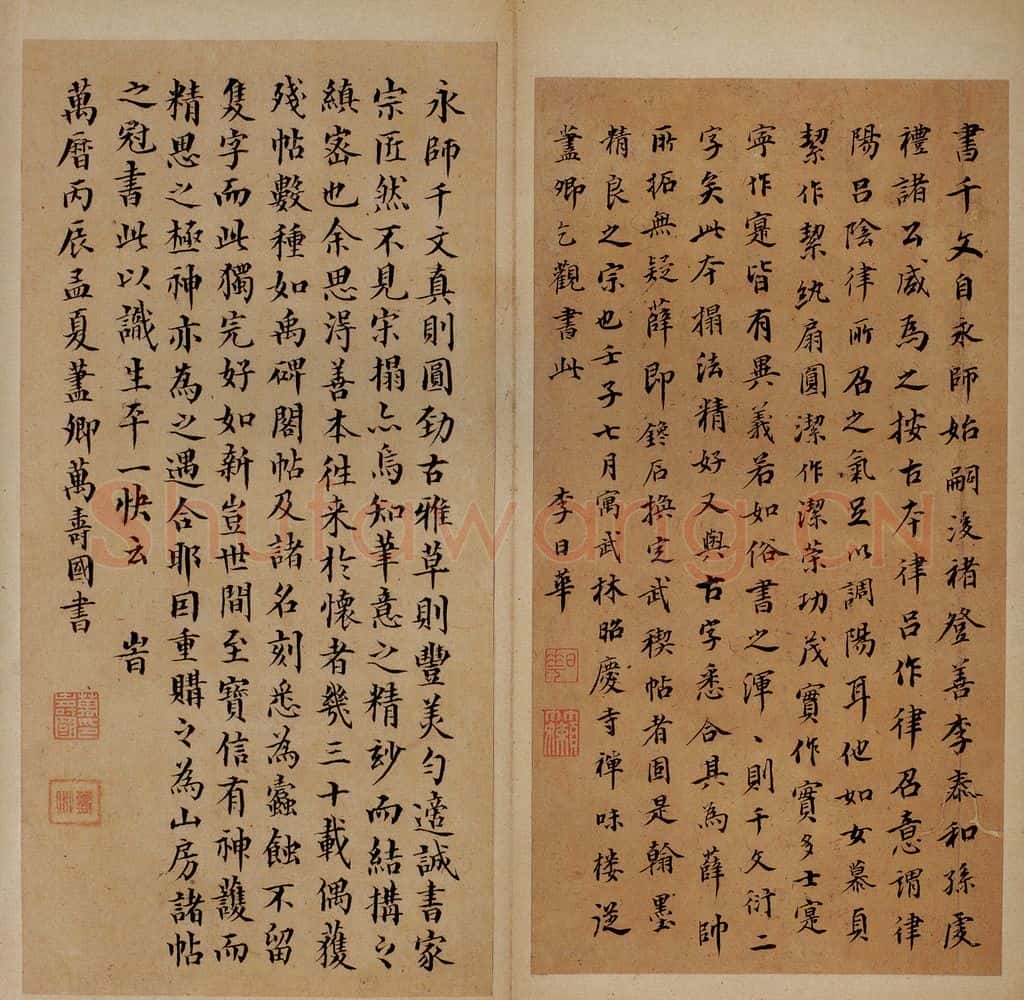 書千文自永師始嗣後褚登善李泰和孫虔
禮諸公咸為之按古本律呂作律召意謂律
陽呂陰律所召之氣足以調陽耳他如女慕貞
絜作絜紈扇圓潔作潔榮功茂實作實多士寔
寧作寔皆有異義若如俗書之渾、則千文衍二
字矣此本搨法精好又與古字悉合其為薛帥
所拓無疑薛即鑱石換定武稧帖者固是翰墨
精良之宗也壬子七月寓武林昭慶寺禪味楼從
藎卿乞觀書此 李日華
永師千文真則圓勁古雅草則豐美勻適誠書家
宗匠然不見宋搨亦烏知筆意之精妙而結搆之
縝密也余思淂善本徃来於懷者幾三十載偶獲
殘帖數種如禹碑閣帖及諸名刻悉為蠹蝕不留
隻字而此獨完好如新豈世間至寶信有神護而
精思之極神亦為之遇合耶因重購之為山房諸帖
之冠書此以識生平一快云 峕
萬曆丙辰孟夏藎卿萬壽國書
Shufawang.CN